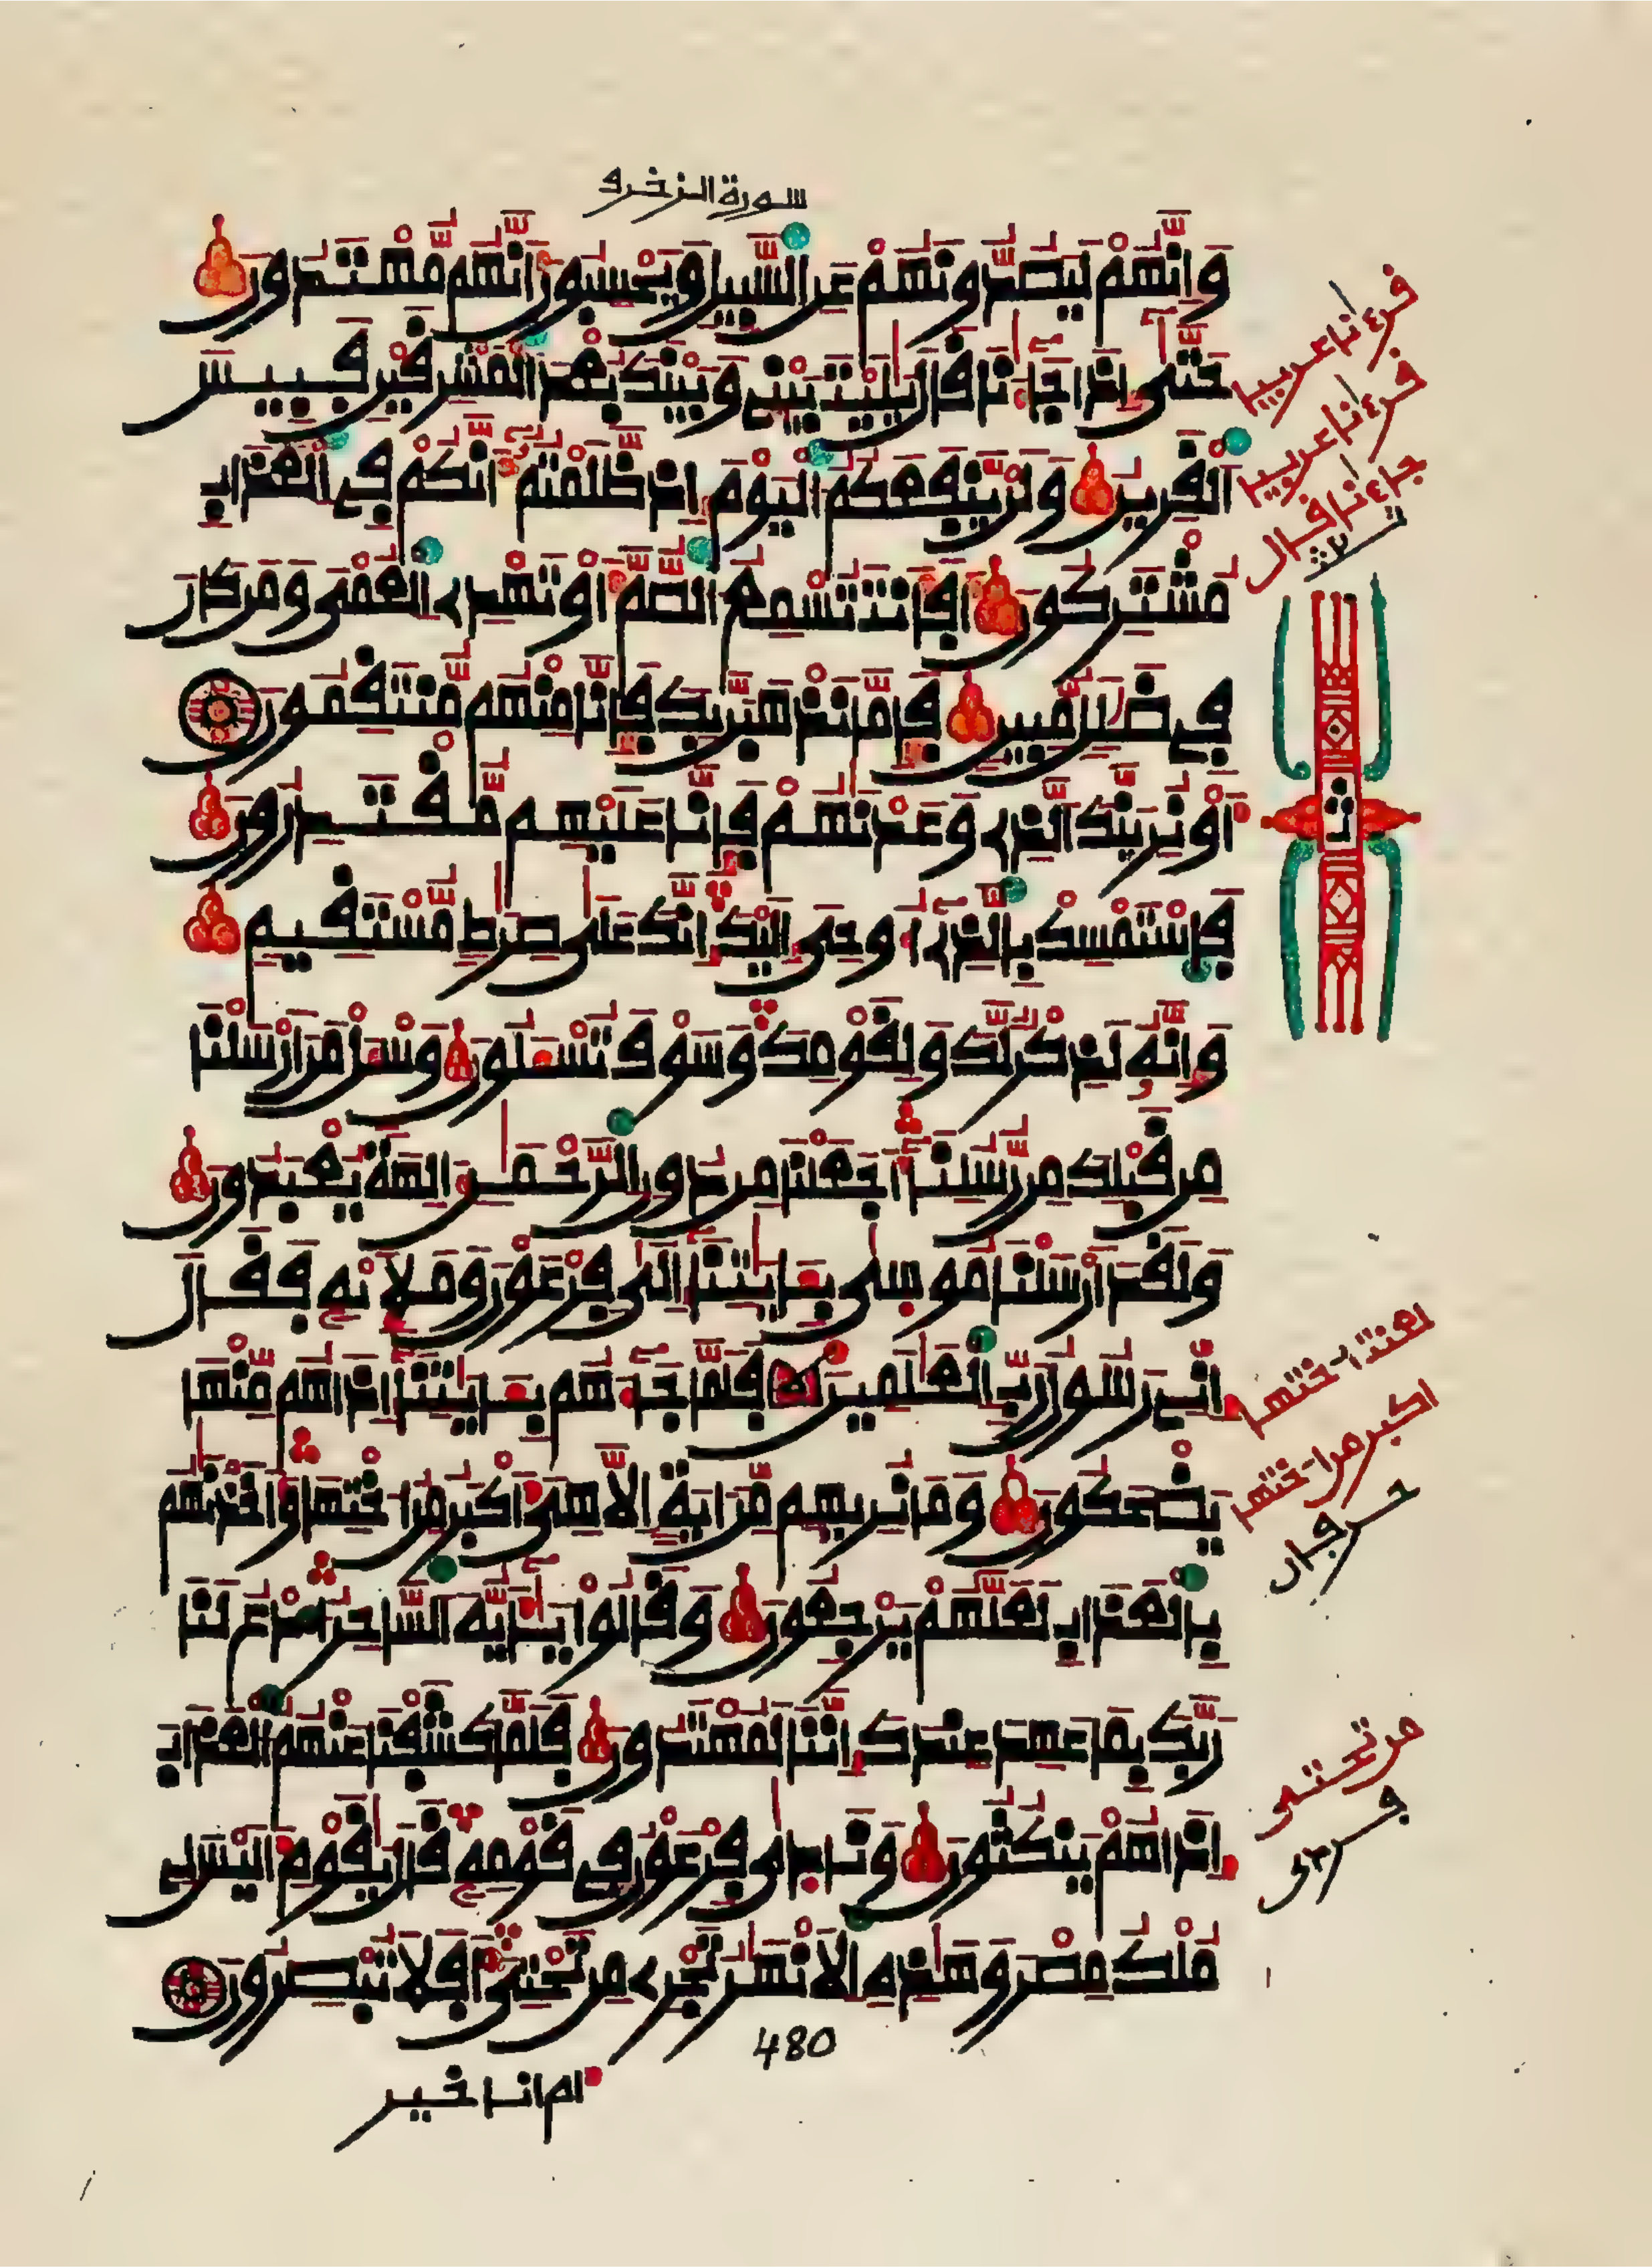 سورة الزخرف
وَإِنَّهُمْ لَيَصُدُّونَهُمْ عَنِ السَّبِيلِ وَيَحْسِبُونَ أَنَّهُم مُّهْتَدُونَ
حَتَّىٰ إِذَا جَآءَٰنَا قَالَ يَٰلَيْتَ بَيْنِي وَبَيْنَكَ بُعْدَ الْمَشْرِقَيْنِ فَبِيسَ
الْقَرِينُ وَلَنْ يَّنفَعَكُمُ الْيَوْمَ إِذ ظَّلَمْتُمُ أَنَّكُمْ فِي الْعَذَابِ
مُشْتَرِكُونَ أَفَأَنتَ تُسْمِعُ الصُّمَّ أَوْ تَهْدِي الْعُمْيَ وَمَن كَانَ
فِي ضَلَٰلٍ مُّبِينٍ فَإِمَّا نَذْهَبَنَّ بِكَ فَإِنَّا مِنْهُم مُّنتَقِمُونَ
أَوْ نُرِيَنَّكَ الَّذِي وَعَدْنَٰهُمْ فَإِنَّا عَلَيْهِم مُّقْتَدِرُونَ
فَاسْتَمْسِكْ بِالَّذِي أُوحِيَ إِلَيْكَ إِنَّكَ عَلَىٰ صِرَٰطٍ مُّسْتَقِيمٍ
وَإِنَّهُ لَذِكْرٌ لَّكَ وَلِقَوْمِكَ وَسَوْفَ تُسْـَٔلُونَ وَسْـَٔلْ مَنْ أَرْسَلْنَا
مِن قَبْلِكَ مِن رُّسُلِنَا أَجَعَلْنَا مِن دُونِ الرَّحْمَٰنِ ءَالِهَةً يُعْبَدُونَ
وَلَقَدْ أَرْسَلْنَا مُوسَىٰ بِـَٔايَٰتِنَا إِلَىٰ فِرْعَوْنَ وَمَلَإِيْهِ فَقَالَ
إِنِّي رَسُولُ رَبِّ الْعَٰلَمِينَ فَلَمَّا جَآءَهُم بِـَٔايَٰتِنَا إِذَا هُم مِّنْهَا
يَضْحَكُونَ وَمَا نُرِيهِم مِّنَ ايَةٍ اِلَّا هِيَ أَكْبَرُ مِنُ اخْتِهَا وَأَخَذْنَٰهُم
بِالْعَذَابِ لَعَلَّهُمْ يَرْجِعُونَ وَقَالُوا يَٰٓأَيُّهَ السَّاحِرُ ادْعُ لَنَا
رَبَّكَ بِمَا عَهِدَ عِندَكَ إِنَّنَا لَمُهْتَدُونَ فَلَمَّا كَشَفْنَا عَنْهُمُ الْعَذَابَ
إِذَا هُمْ يَنكُثُونَ وَنَادَىٰ فِرْعَوْنُ فِي قَوْمِهِ قَالَ يَٰقَوْمِ أَلَيْسَ لِي
مُلْكُ مِصْرَ وَهَٰذِهِ الْأَنْهَٰرُ تَجْرِي مِن تَحْتِيَ أَفَلَا تُبْصِرُونَ
480
أم أنا خير
قرءٰنا عربيا
قرءٰنا عربيا
جاءٰنا قال
ثمن
من اختها
أكبر من اختها
من تحتي